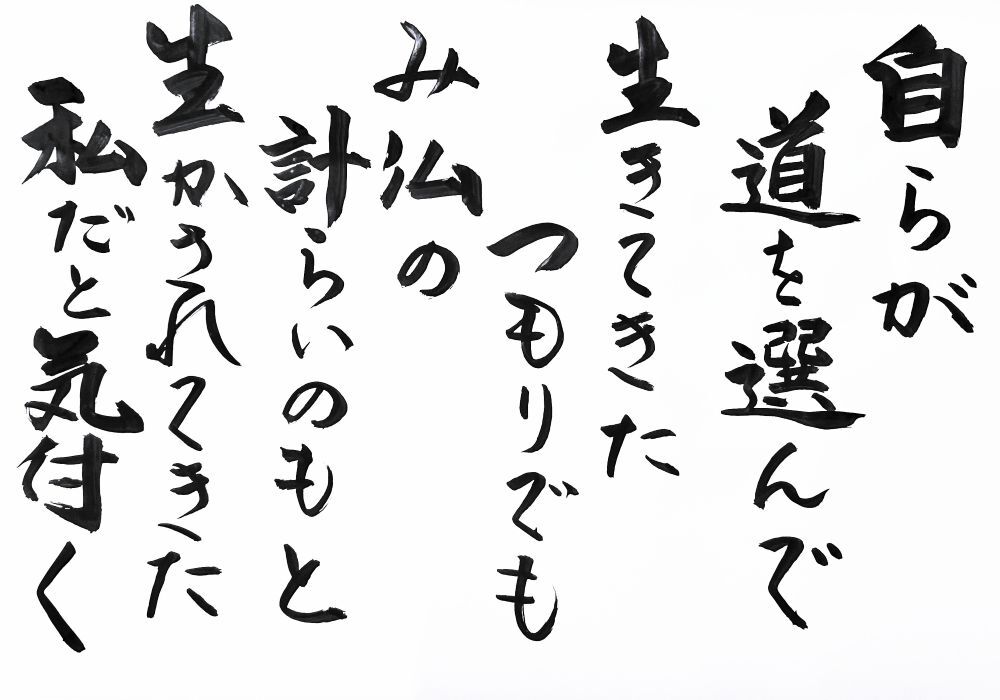 自らが
道を選んで
生きてきた
つもりでも
み仏の
計らいのもと
生かされてきた
私だと気付く